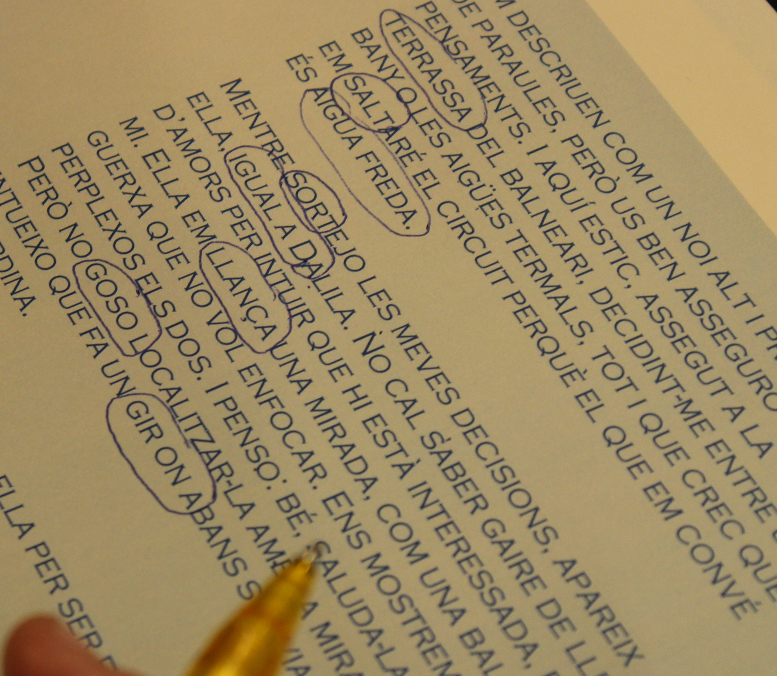 M DESCRIUEN COM UN NOI ALT I
DE PARAULES, PERÒ US BEN ASSEGURO
PENSAMENTS. I AQUÍ ESTIC, ASSEGUT A LA
TERRASSA DEL BALNEARI, DECIDINT-ME ENTRE
BANY O LES AIGÜES TERMALS, TOT I QUE CREC QUE
EM SALTARÉ EL CIRCUIT PERQUÈ EL QUE EM CONVÉ
ÉS AIGUA FREDA.
MENTRE SORTEJO LES MEVES DECISIONS, APAREIX
ELLA, IGUAL A DALILA. NO CAL SABER GAIRE DE
D'AMORS PER INTUIR QUE HI ESTÀ INTERESSADA,
MI. ELLA EM LLANÇA UNA MIRADA, COM UNA
GUERXA QUE NO VOL ENFOCAR. ENS MOSTREM
PERPLEXOS ELS DOS. I PENSO: BÉ, SALUDA-LA
PERÒ NO GOSO LOCALITZAR-LA A MIRA
INTUEIXO QUE FA UN GIR ON ABANS
RDINA.
ELLA PER SER